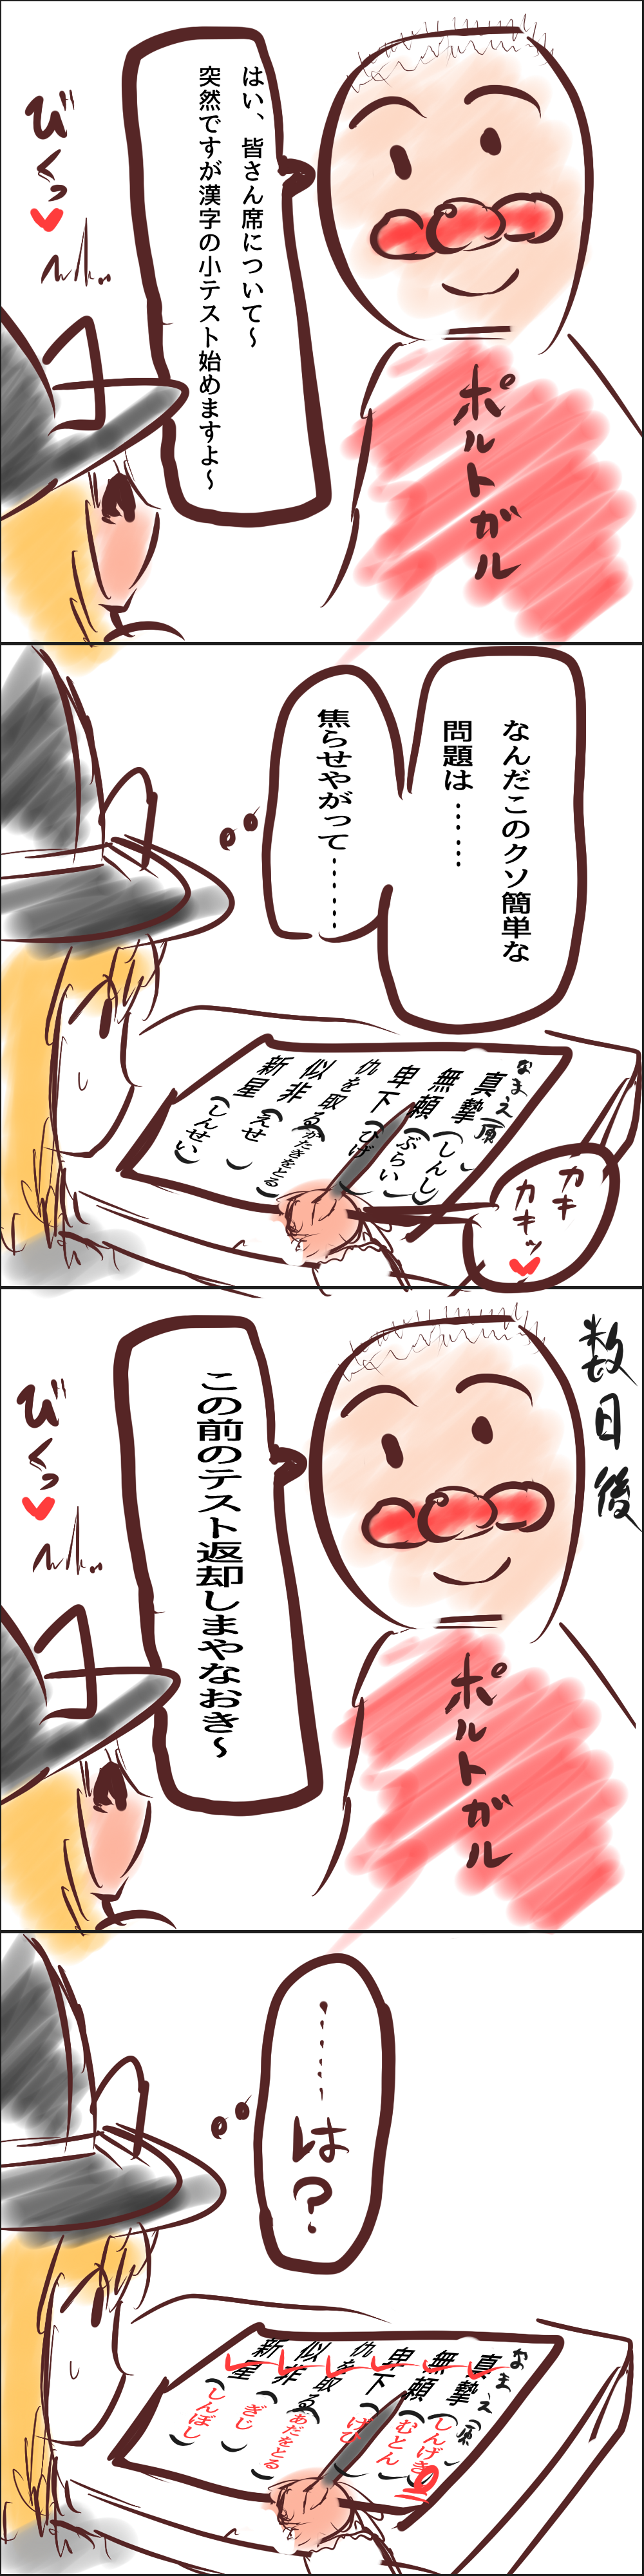 はい、皆さん席について～
突然ですが漢字の小テスト始めますよ～
ポルトガル
びくっ
なんだこのクソ簡単な
問題は……
焦らせやがって……
なまえ
真摯（しんし）
無頼（ぶらい）
卑下（ひげ）
仇を取る（かたきをとる）
似非（えせ）
新星（しんせい）
カキ
カキッ
数日後
この前のテスト返却しまやなおき～
ポルトガル
びくっ
……は？
なまえ
真摯（しんげき）
無頼（むとん）
卑下（げひ）
仇を取る（あだをとる）
似非（ぎじ）
新星（しんぼし）
0